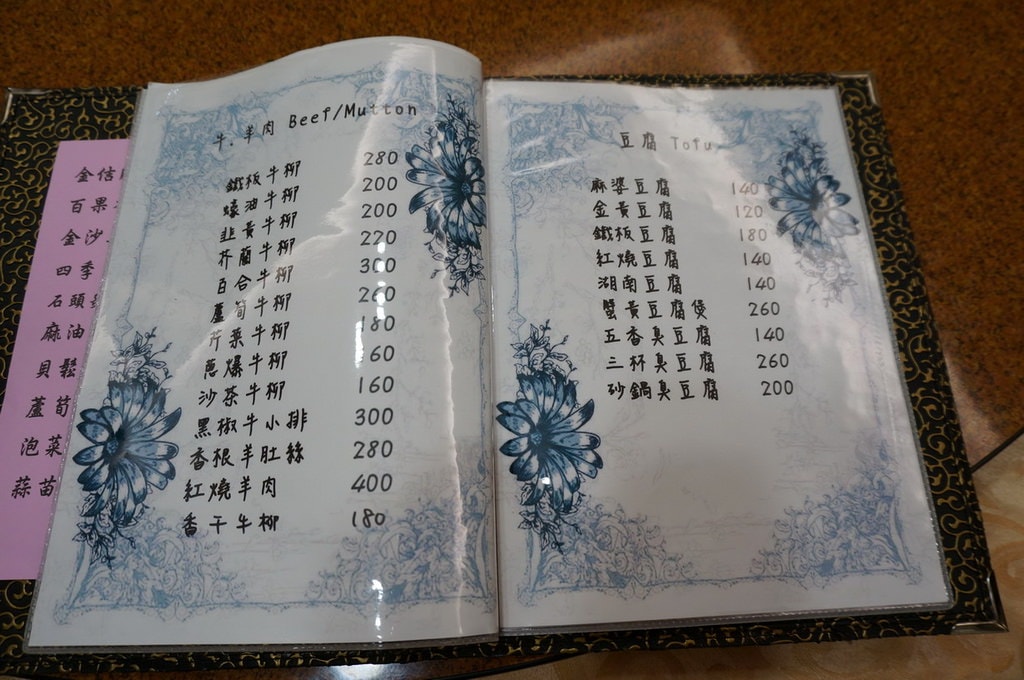 金
百果
金沙
四季
石頭
麻油
貝鬆
蘆筍
泡菜
蒜苗
牛.羊肉 Beef/Mutton
鐵板牛柳 280
蠔油牛柳 200
韭黃牛柳 200
芥蘭牛柳 220
百合牛柳 300
蘆筍牛柳 260
芹菜牛柳 180
蔥爆牛柳 160
沙茶牛柳 160
黑椒牛小排 300
香根羊肚絲 280
紅燒羊肉 400
香干牛柳 180
豆腐 Tofu
麻婆豆腐 140
金黃豆腐 120
鐵板豆腐 180
紅燒豆腐 140
湖南豆腐 140
蟹黃豆腐煲 260
五香臭豆腐 140
三杯臭豆腐 260
砂鍋臭豆腐 200